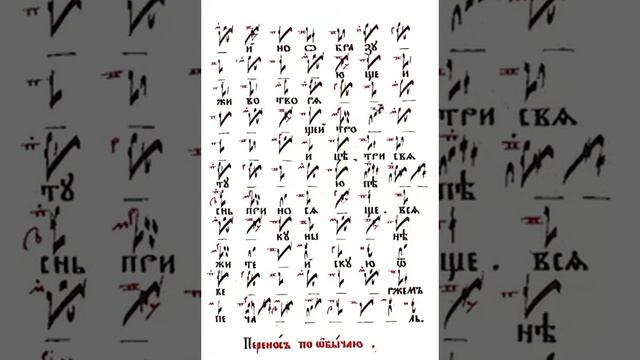 и но ѡ бра зу
ю ще и
жи во тво рѧ
щей тро
и цѣ . три свѧ
ту ю пѣ
снь при но сѧ ще . всѧ
ку ны нѣ
жи те и скую ѿ
ве ржемъ
пе ча ль .
Переносъ по ѡбычаю .